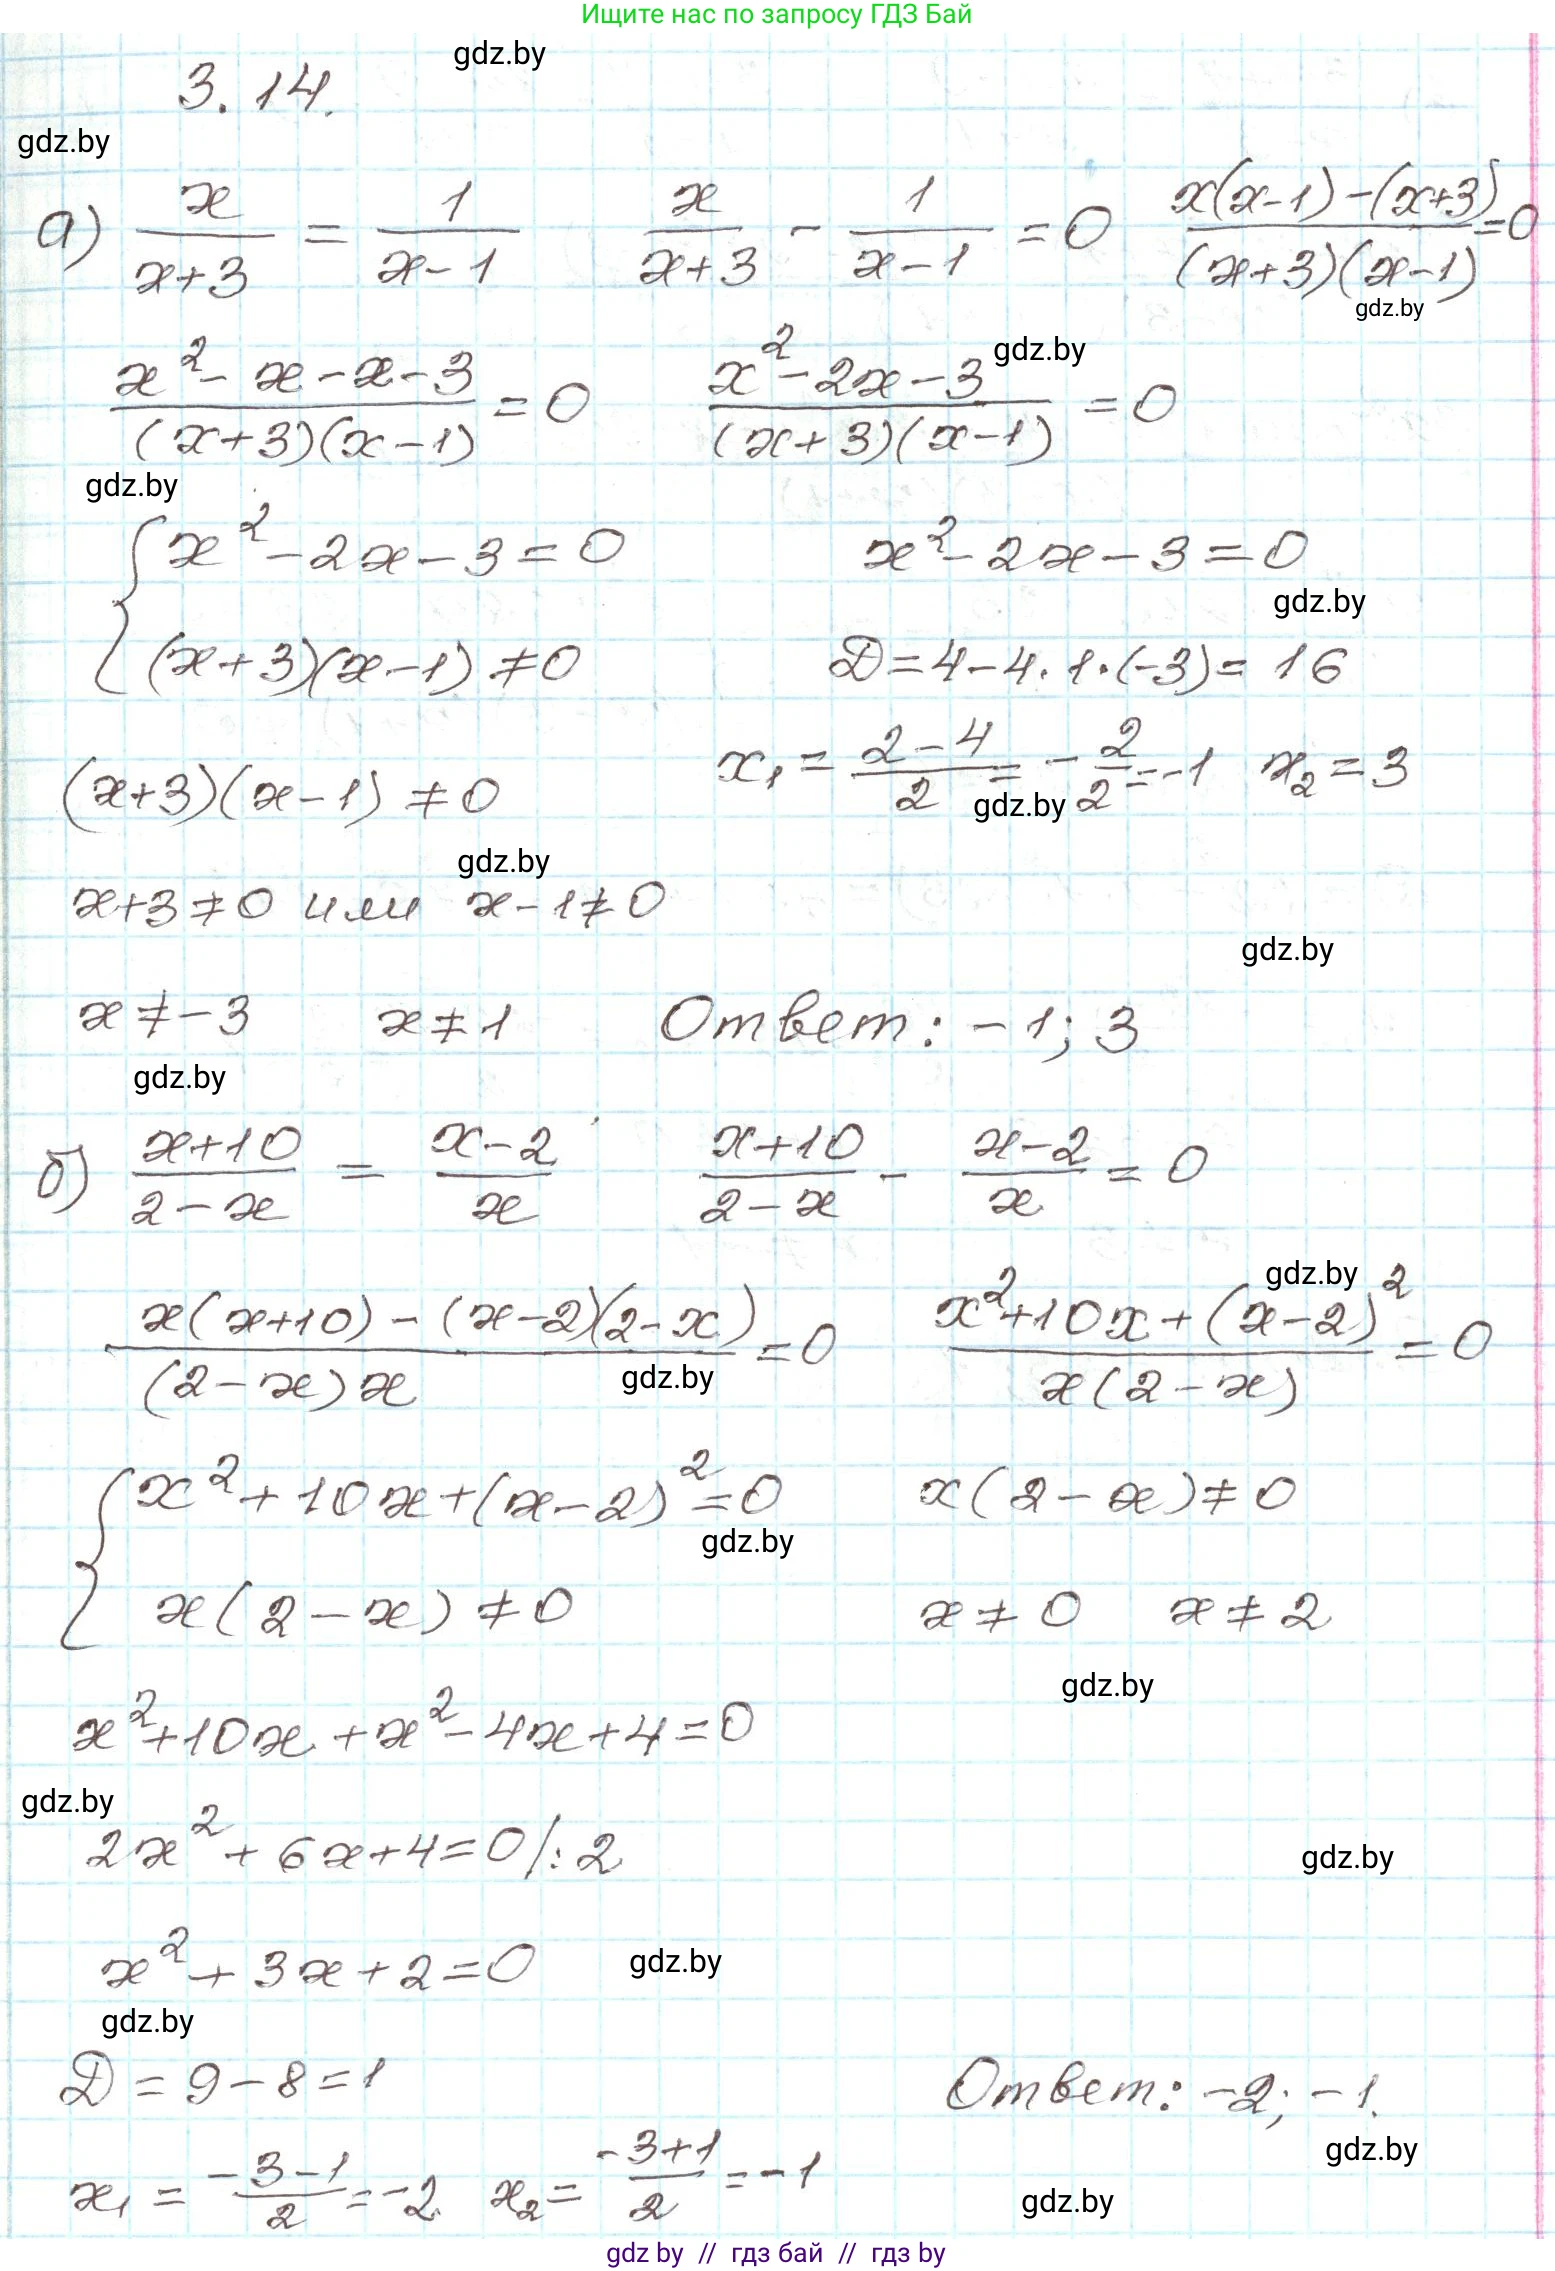 Ищите нас по запросу ГДЗ Бай
gdz.by
3.14.
gdz.by
а) x/(x+3) = 1/(x-1)   x/(x+3) - 1/(x-1) = 0   (x(x-1)-(x+3))/((x+3)(x-1)) = 0
gdz.by
(x²-x-x-3)/((x+3)(x-1)) = 0   (x²-2x-3)/((x+3)(x-1)) = 0
gdz.by
gdz.by
{ x²-2x-3=0   x²-2x-3=0
gdz.by
(x+3)(x-1)≠0   D=4-4·1·(-3)=16
(x+3)(x-1)≠0   x₁=(2-4)/2=-2/2=-1   x₂=3
gdz.by
gdz.by
x+3≠0 или x-1≠0
gdz.by
x≠-3   x≠1   Ответ: -1; 3
gdz.by
б) (x+10)/(2-x) = (x-2)/x   (x+10)/(2-x) - (x-2)/x = 0
gdz.by
(x(x+10)-(x-2)(2-x))/((2-x)x) = 0   (x²+10x+(x-2)²)/(x(2-x)) = 0
gdz.by
{ x²+10x+(x-2)²=0   x(2-x)≠0
gdz.by
x(2-x)≠0   x≠0   x≠2
gdz.by
x²+10x+x²-4x+4=0
gdz.by
2x²+6x+4=0 |:2
gdz.by
x²+3x+2=0
gdz.by
gdz.by
D=9-8=1   Ответ: -2; -1.
gdz.by
x₁=(-3-1)/2=-2   x₂=(-3+1)/2=-1
gdz.by
gdz by // гдз бай // гдз by